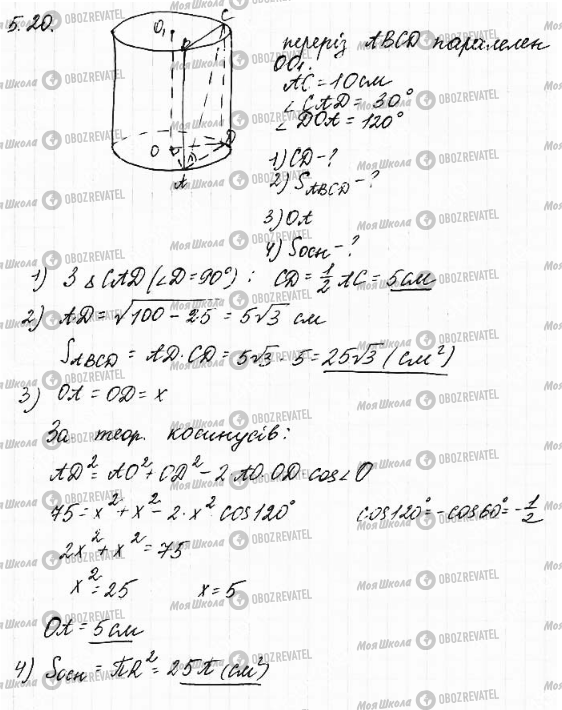 5.20.
O₁ C
O D
A
переріз ABCD паралелен
OO₁.
AC = 10 см
∠CAD = 30°
∠DOA = 120°
1) CD - ?
2) S_ABCD - ?
3) OA
4) Sосн - ?
1) З △CAD (∠D = 90°): CD = 1/2 AC = 5 см
2) AD = √(100 - 25) = 5√3 см
S_ABCD = AD · CD = 5√3 · 5 = 25√3 (см²)
3) OA = OD = x
За теор. косинусів:
AD² = AO² + OD² - 2 AO · OD cos∠O
75 = x² + x² - 2 · x² · cos120° cos120° = -cos60° = -1/2
2x² + x² = 75
x² = 25 x = 5
OA = 5 см
4) Sосн = πR² = 25π (см²)
Моя Школа OBOZREVATEL